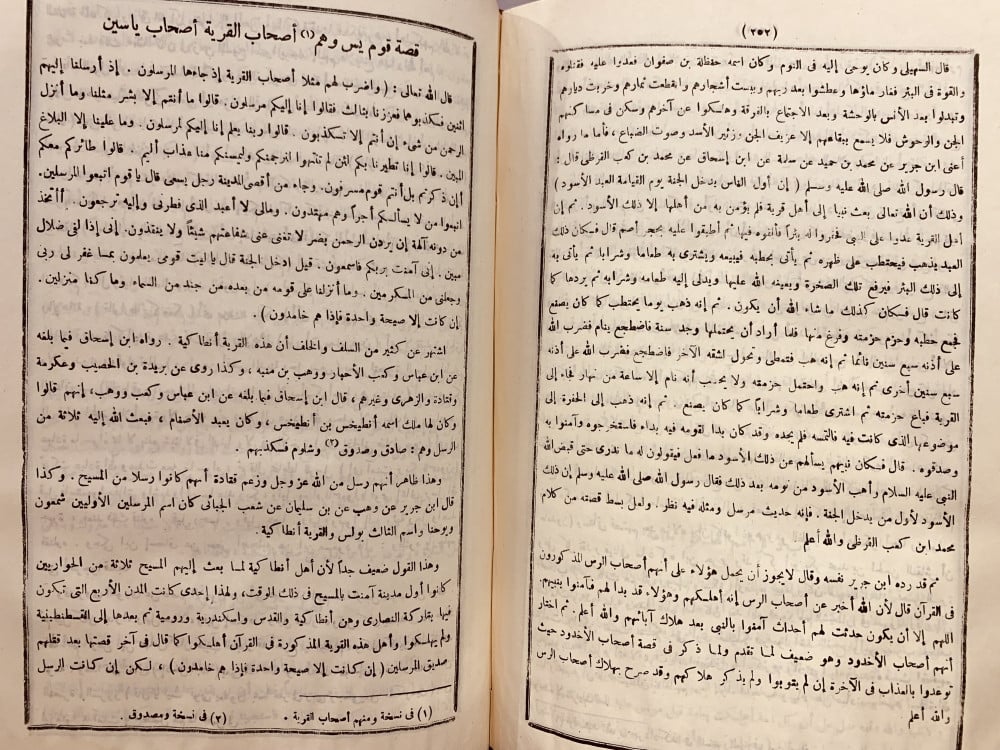 (٢٥٢)
قال السهيلى وكان يوحى إليه فى النوم وكان اسمه حنظلة بن صفوان فعدوا عليه فقتلوه
والقوة فى البئر فغار ماؤها وعطشوا بعد ريهم ويبست أشجارهم وانقطعت ثمارهم وخربت ديارهم
وتبدلوا بعد الأنس بالوحشة وبعد الاجتماع بالفرقة وهلكوا عن آخرهم وسكن فى مساكنهم
الجن والوحوش فلا يسمع ببقاعهم إلا عزيف الجن وزئير الأسد وصوت الضباع ، فأما ما رواه
أعنى ابن جرير عن محمد بن حميد عن سلمة عن ابن إسحاق عن محمد بن كعب القرظى قال :
قال رسول الله صلى الله عليه وسلم ( إن أول الناس يدخل الجنة يوم القيامة العبد الأسود )
وذلك أن الله تعالى بعث نبيا إلى أهل قرية فلم يؤمن به من أهلها إلا ذلك الأسود . ثم إن
أهل القرية عدوا على النبى فحفروا له بئراً فألقوه فيها ثم أطبقوا عليه بحجر أصم قال فكان ذلك
العبد يذهب فيحتطب على ظهره ثم يأتى بحطبه فيبيعه ويشترى به طعاما وشرابا ثم يأتى به
إلى ذلك البئر فيرفع تلك الصخرة ويعينه الله عليها ويدلى إليه طعامه وشرابه ثم يردها كما
كانت قال فكان كذلك ما شاء الله أن يكون . ثم إنه ذهب يوما يحتطب كما كان يصنع
فجمع حطبه وحزم حزمته وفرغ منها فلما أراد أن يحتملها وجد سنة فاضطجع ينام فضرب الله
على أذنه سبع سنين نائما ثم إنه هب فتمطى وتحول لشقه الآخر فاضطجع فضرب الله على أذنه
سبع سنين أخرى ثم إنه هب واحتمل حزمته ولا يحسب أنه نام إلا ساعة من نهار فجاء إلى
القرية فباع حزمته ثم اشترى طعاما وشراباً كما كان يصنع . ثم إنه ذهب إلى الحفرة إلى
موضوعها الذى كانت فيه فالتمسه فلم يجده وقد كان بدا لقومه فيه بداء فاستخرجوه وآمنوا به
وصدقوه . قال فكان نبيهم يسألهم عن ذلك الأسود ما فعل فيقولون له ما ندرى حتى قبض الله
النبى عليه السلام وأهب الأسود من نومه بعد ذلك فقال رسول الله صلى الله عليه وسلم إن ذلك
الأسود لأول من يدخل الجنة . فإنه حديث مرسل ومثله فيه نظر . ولعل بسط قصته من كلام
محمد ابن كعب القرظى والله أعلم !
ثم قد رده ابن جرير نفسه وقال لا يجوز أن يحمل هؤلاء على أنهم أصحاب الرس المذكورون
فى القرآن قال لأن الله أخبر عن أصحاب الرس إنه أهلكهم وهؤلاء قد بدا لهم فآمنوا بنبيهم.
اللهم إلا أن يكون حدثت لهم أحداث آمنوا بالنبى بعد هلاك آبائهم والله أعلم . ثم اختار
أنهم أصحاب الأخدود وهو ضعيف لما تقدم ولما ذكر فى قصة أصحاب الأخدود حيث
توعدوا بالعذاب فى الآخرة إن لم يتوبوا ولم يذكر هلاكهم وقد صرح بهلاك أصحاب الرس
والله أعلم
قصة قوم يس وهم (١) أصحاب القرية أصحاب ياسين
قال الله تعالى : ( واضرب لهم مثلا أصحاب القرية إذ جاءها المرسلون . إذ أرسلنا إليهم
اثنين فكذبوهما فعززنا بثالث فقالوا إنا إليكم مرسلون . قالوا ما أنتم إلا بشر مثلنا وما أنزل
الرحمن من شىء إن أنتم إلا تكذبون . قالوا ربنا يعلم إنا إليكم لمرسلون . وما علينا إلا البلاغ
المبين . قالوا إنا تطيرنا بكم لئن لم تنتهوا لنرجمنكم وليمسنكم منا عذاب أليم . قالوا طائركم معكم
أإن ذكرتم بل أنتم قوم مسرفون. وجاء من أقصى المدينة رجل يسعى قال يا قوم اتبعوا المرسلين.
اتبعوا من لا يسألكم أجراً وهم مهتدون . ومالى لا أعبد الذى فطرنى وإليه ترجعون . أأتخذ
من دونه آلهة إن يردن الرحمن بضر لا تغنى عنى شفاعتهم شيئاً ولا ينقذون. إنى إذا لفى ضلال
مبين . إنى آمنت بربكم فاسمعون . قيل ادخل الجنة قال يا ليت قومى يعلمون بما غفر لى ربى
وجعلنى من المكرمين . وما أنزلنا على قومه من بعده من جند من السماء وما كنا منزلين.
إن كانت إلا صيحة واحدة فإذا هم خامدون ) .
اشتهر عن كثير من السلف والخلف أن هذه القرية أنطاكية . رواه ابن إسحاق فيما بلغه
عن ابن عباس وكعب الأحبار ووهب بن منبه ، وكذا روى عن بريدة بن الحصيب وعكرمة
وقتادة والزهرى وغيرهم ، قال ابن إسحاق فيما بلغه عن ابن عباس وكعب ووهب، إنهم قالوا
وكان لها ملك اسمه أنطيخس بن أنطيخس ، وكان يعبد الأصنام ، فبعث الله إليه ثلاثة من
الرسل وهم : صادق وصدوق (٢) وشلوم فكذبهم .
وهذا ظاهر أنهم رسل من الله عز وجل وزعم قتادة أنهم كانوا رسلا من المسيح . وكذا
قال ابن جرير عن وهب عن بن سليمان عن شعب الجبائى كان اسم المرسلين الأوليين شمعون
ويوحنا واسم الثالث بولس والقرية أنطاكية.
وهذا القول ضعيف جداً لأن أهل أنطاكية لما بعث إليهم المسيح ثلاثة من الحواريين
كانوا أول مدينة آمنت بالمسيح فى ذلك الوقت، ولهذا إحدى كانت المدن الأربع التى تكون
فيها بتاركة النصارى وهن أنطاكية والقدس واسكندرية ورومية ثم بعدها إلى القسطنطينية
ولم يهلكوا وأهل هذه القرية المذكورة فى القرآن أهلكوا كما قال فى آخر قصتها بعد قتلهم
صديق المرسلين ( إن كانت إلا صيحة واحدة فإذا هم خامدون ) ، لكن إن كانت الرسل
(١) فى نسخة ومنهم أصحاب القرية . (٢) فى نسخة ومصدوق .